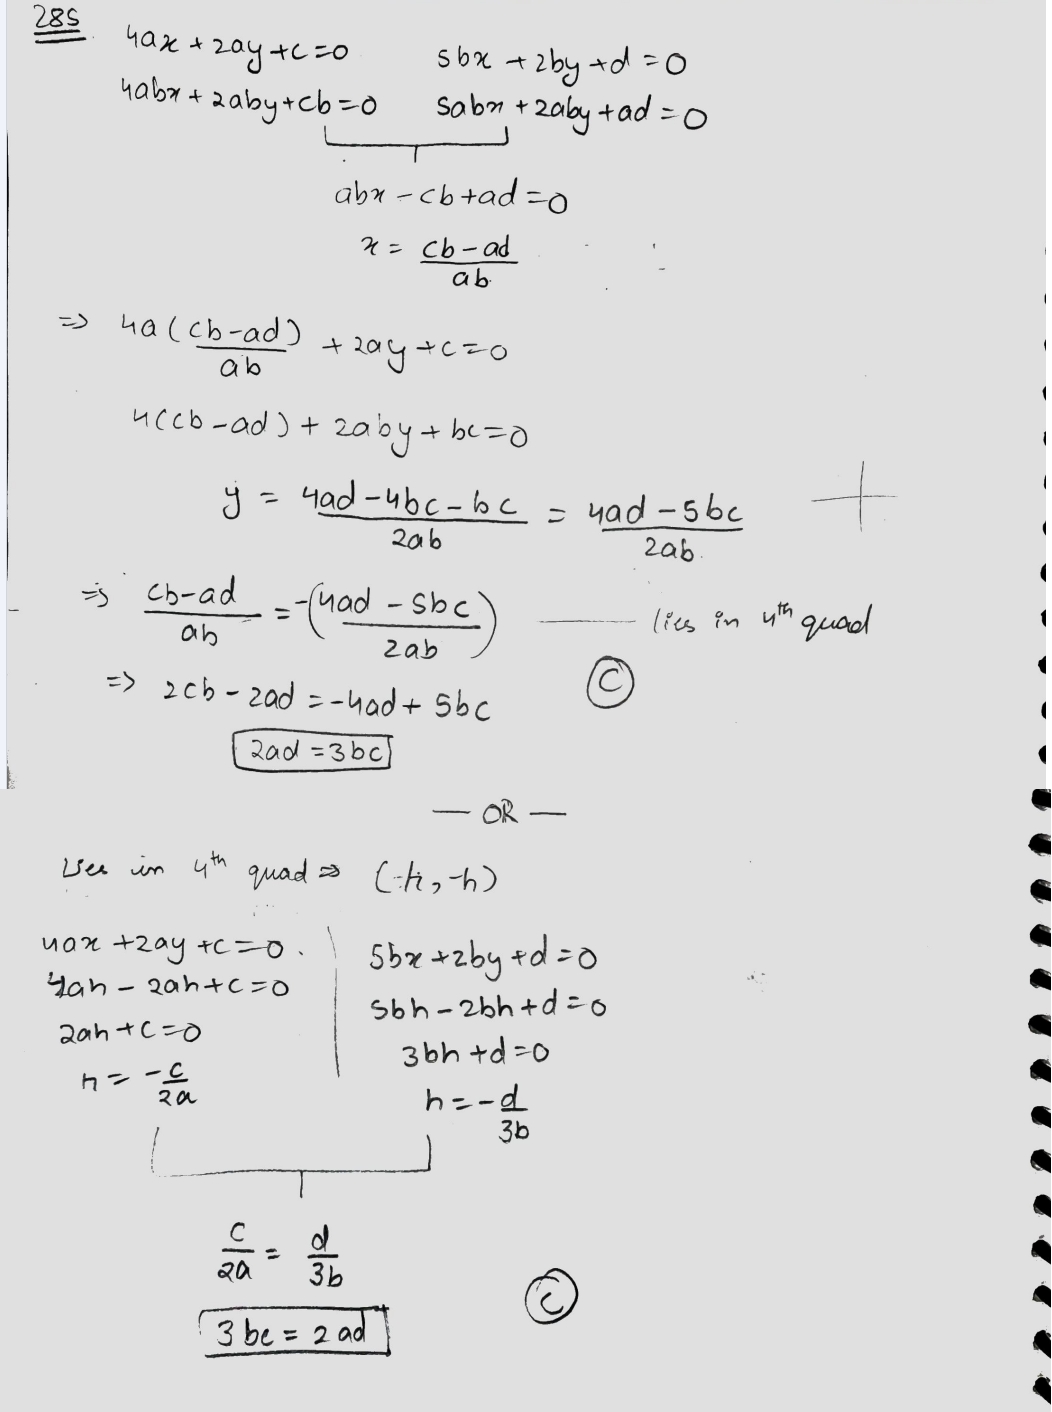 285
4ax + 2ay + c = 0    5bx + 2by + d = 0
4abx + 2aby + cb = 0    5abx + 2aby + ad = 0
abx - cb + ad = 0
x = (cb - ad)/ab
⇒ 4a(cb - ad)/ab + 2ay + c = 0
4(cb - ad) + 2aby + bc = 0
y = (4ad - 4bc - bc)/2ab = (4ad - 5bc)/2ab.
⇒ (cb - ad)/ab = -((4ad - 5bc)/2ab) — lies in 4th quad
⇒ 2cb - 2ad = -4ad + 5bc    C
2ad = 3bc
— OR —
Lies in 4th quad ⇒ (h, -h)
4ax + 2ay + c = 0.    5bx + 2by + d = 0
4ah - 2ah + c = 0    5bh - 2bh + d = 0
2ah + c = 0    3bh + d = 0
h = -c/2a    h = -d/3b
c/2a = d/3b
3bc = 2ad    C